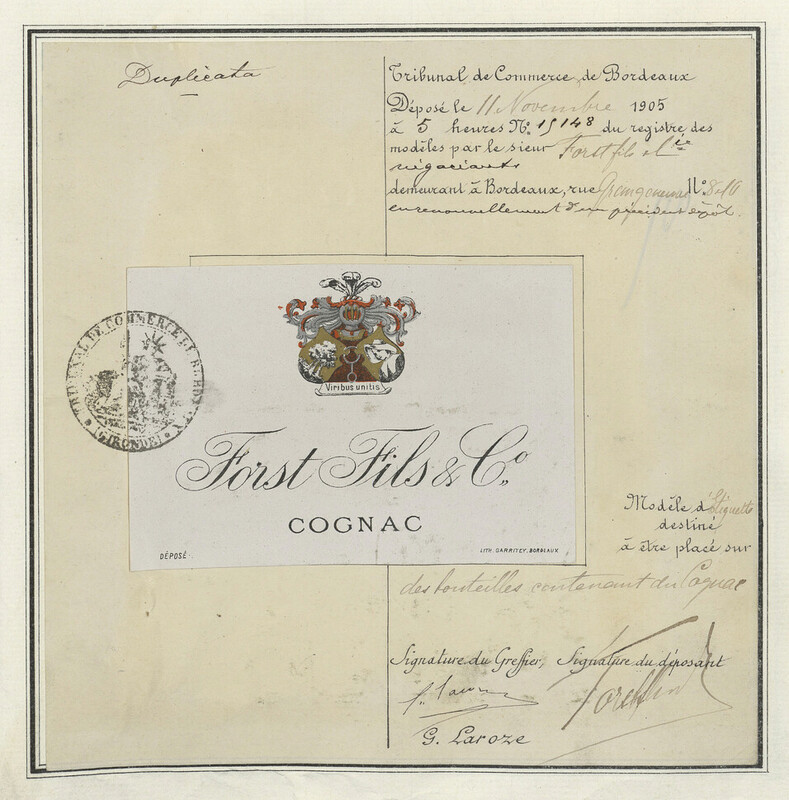 Duplicata
Tribunal de Commerce de Bordeaux
Déposé le 11 Novembre 1905
à 5 heures N° 15148 du registre des
modèles par le sieur Forst fils et Cie
négociants
demeurant à Bordeaux, rue N° 8 et 10
en renouvellement d'un précédent dépôt.
TRIBUNAL DE COMMERCE DE BORDEAUX
(GIRONDE)
Viribus unitis
Forst Fils & Co.
COGNAC
DÉPOSÉ
LITH. GARRITEY, BORDEAUX
Modèle d'étiquette
destiné
à être placé sur
des bouteilles contenant du Cognac
Signature du Greffier, Signature du déposant
G. Laroze